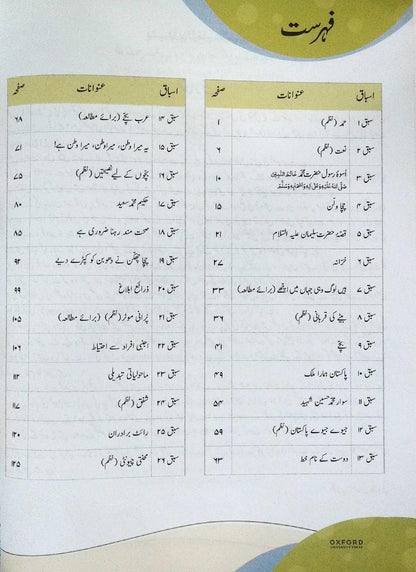 فہرست
اسباق عنوانات صفحہ
سبق ۱ حمد (نظم) ۱
سبق ۲ نعت (نظم) ۶
سبق ۳ اُسوۂ رسول حضرت محمد خَاتَمُ النَّبِیّٖنَ ۱۰
صَلَّی اللہُ عَلَیْہِ وَعَلٰی اٰلِہٖ وَاَصْحَابِہٖ وَسَلَّمَ
سبق ۴ چچا ونُن ۱۵
سبق ۵ قصّۂ حضرت سلیمان علیہ السّلام ۲۱
سبق ۶ خزانہ ۲۷
سبق ۷ ہیں لوگ وہی جہاں میں اچھے (برائے مطالعہ) ۳۳
سبق ۸ بیٹے کی قربانی (نظم) ۳۶
سبق ۹ بچے ۴۱
سبق ۱۰ پاکستان ہمارا ملک ۴۹
سبق ۱۱ سوار محمد حسین شہید ۵۴
سبق ۱۲ جیوے جیوے پاکستان (نظم) ۵۹
سبق ۱۳ دوست کے نام خط ۶۳
اسباق عنوانات صفحہ
سبق ۱۴ عرب بچے (برائے مطالعہ) ۶۸
سبق ۱۵ یہ میرا وطن، میرا وطن، میرا وطن ہے! ۷۱
سبق ۱۶ بچّوں کے لیے نصیحتیں (نظم) ۷۵
سبق ۱۷ حکیم محمد سعید ۸۰
سبق ۱۸ صحت مند رہنا ضروری ہے ۸۵
سبق ۱۹ چچا چھکن نے دھوبن کو کپڑے دیے ۹۲
سبق ۲۰ ذرائع ابلاغ ۹۹
سبق ۲۱ پُرانی موٹر (نظم) (برائے مطالعہ) ۱۰۵
سبق ۲۲ اجنبی افراد سے احتیاط ۱۰۶
سبق ۲۳ ماحولیاتی تبدیلی ۱۱۲
سبق ۲۴ شفق (نظم) ۱۱۷
سبق ۲۵ رائٹ برادران ۱۲۰
سبق ۲۶ محنتی چیونٹی (نظم) ۱۲۵
OXFORD
UNIVERSITY PRESS